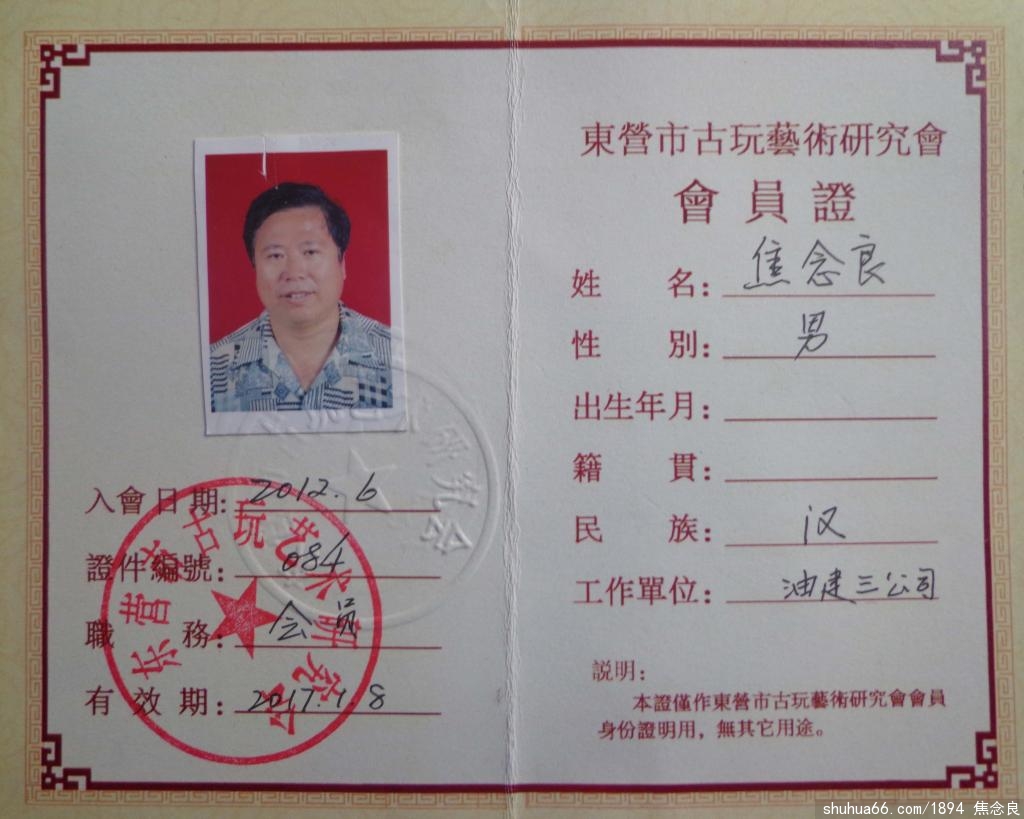 入會日期：2012.6
證件編號：084
職 務：会员
有效期：2017.1.8
东营市古玩艺术研究会
研究会
東營市古玩藝術研究會
會員證
姓 名：焦念良
性 別：男
出生年月：
籍 貫：
民 族：汉
工作單位：油建三公司
説明：
本證僅作東營市古玩藝術研究會會員
身份證明用，無其它用途。
shuhua66.com/1894 焦念良